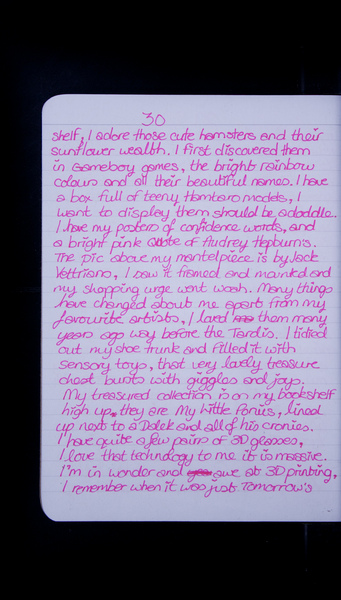 30
shelf, I adore those cute hamsters and their
sunflower wealth. I first discovered them
in Gameboy games, the bright rainbow
colours and all their beautiful names. I have
a box full of teeny Hamtaro models, I
want to display them should be a doddle.
I have my posters of confidence words, and
a bright pink quote of Audrey Hepburn's.
The pic above my mantelpiece is by Jack
Vettriano, I saw it framed and mounted and
my shopping urge went woah. Many things
have changed about me apart from my
favourite artists, I loved them many
years ago way before the Tardis. I tidied
out my shoe trunk and filled it with
sensory toys, that very lovely treasure
chest bursts with giggles and joys.
My treasured collection is on my bookshelf
high up, they are My Little Ponies, lined
up next to a Dalek and all of his cronies.
I have quite a few pairs of 3D glasses,
I love that technology to me it is massive.
I'm in wonder and awe at 3D printing,
I remember when it was just Tomorrow's